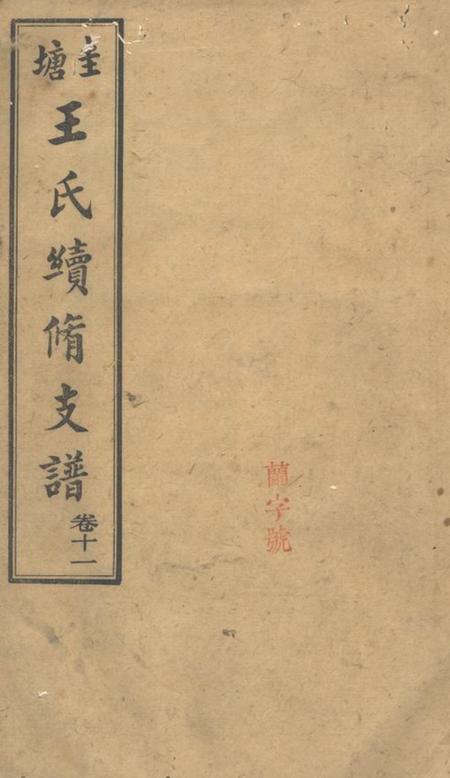 圭塘王氏續脩支譜卷十一
蘭字號